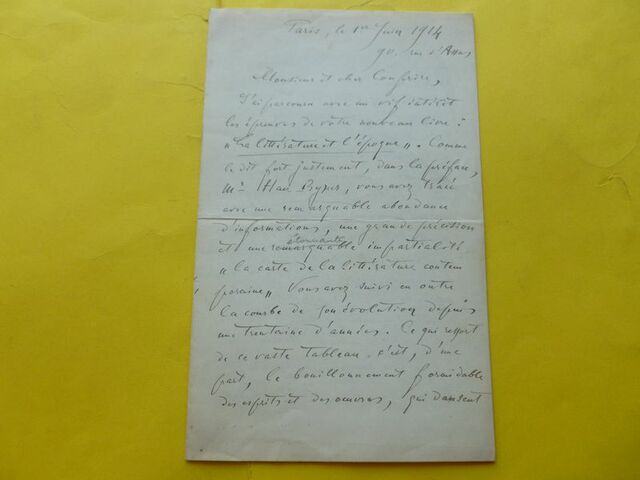 Paris, le 1er Juin 1914
90, rue d'Assas
Monsieur et cher Confrère,
J'ai parcouru avec un vif intérêt
les épreuves de votre nouveau livre :
"La littérature et l'époque". Comme
le dit fort justement, dans la préface,
Mr Han Ryner, vous avez tracé
avec une remarquable abondance
d'informations, une grande précision
et une remarquable étonnante impartialité
"la carte de la littérature contem
poraine" Vous avez suivi en outre
la courbe de son évolution depuis
une trentaine d'années. Ce qui ressort
de ce vaste tableau, c'est, d'une
part, le bouillonnement formidable
des esprits et des oeuvres, qui dansent